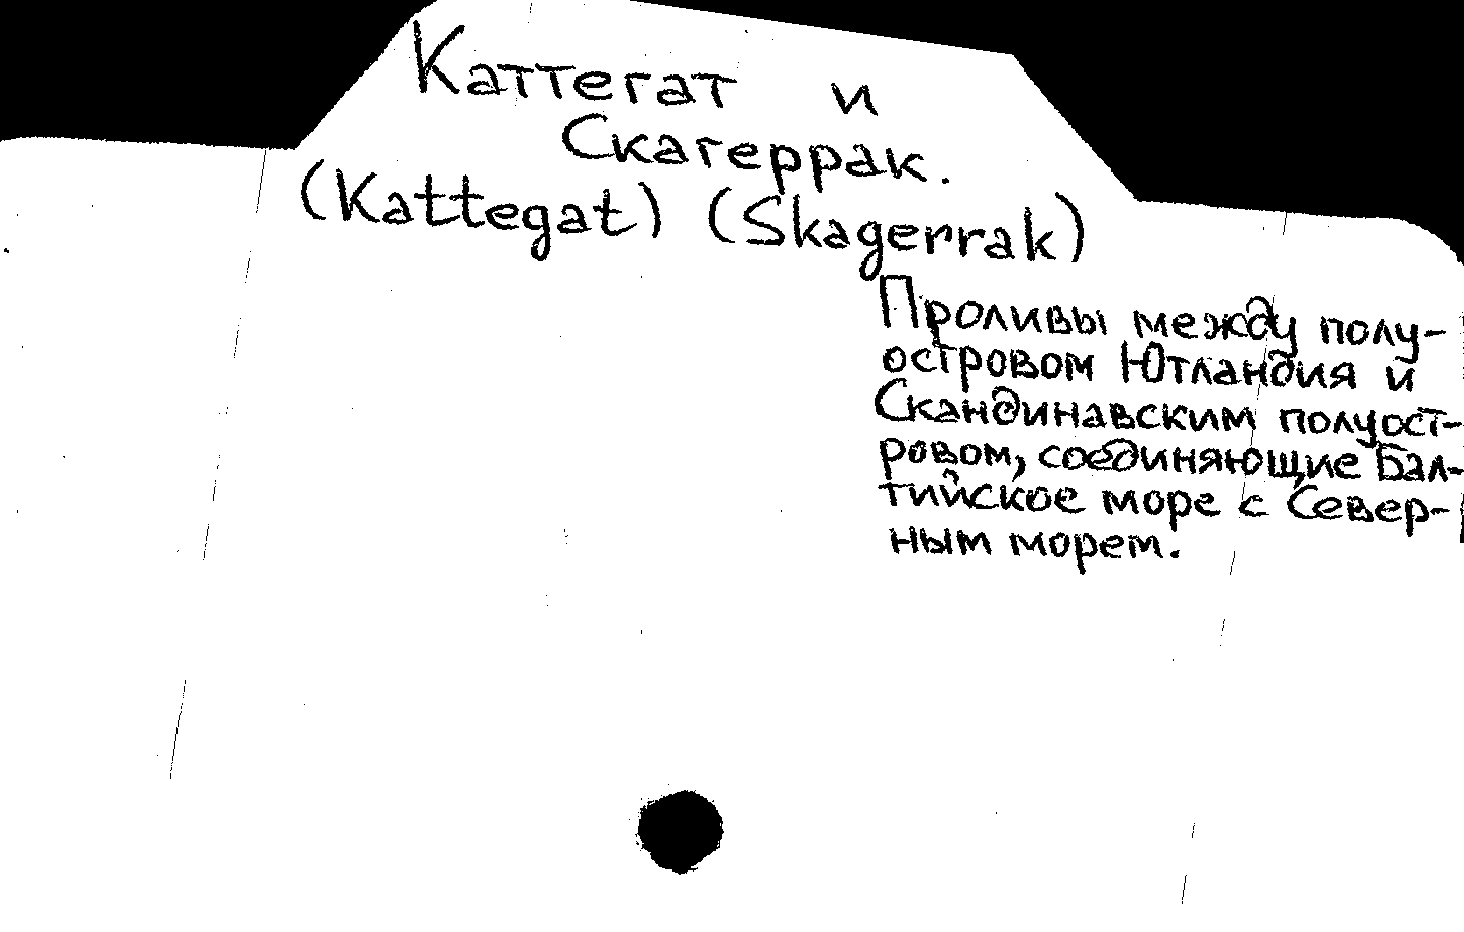 Каттегат и
Скагеррак.
(Kattegat) (Skagerrak)
Проливы между полу-
островом Ютландия и
Скандинавским полуост-
ровом, соединяющие Бал-
тийское море с Север-
ным морем.